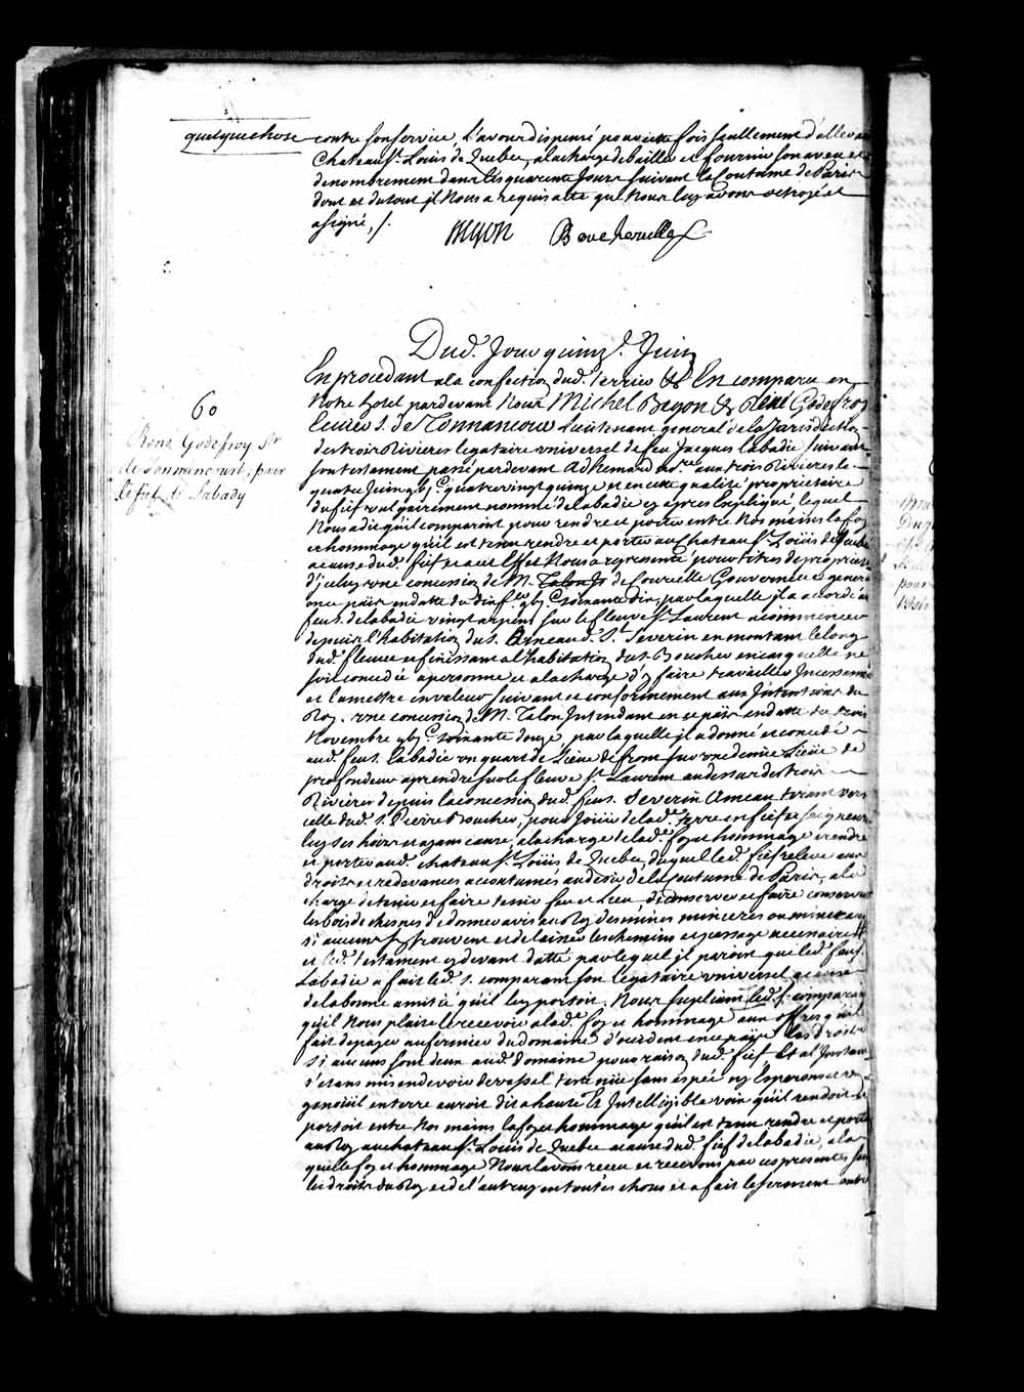 quelque chose contre son service, L'avons dispensé pour cette fois seullement d'aller au
Chateau St. Louis de Quebec, a la charge de bailler et fournir son aveu et
denombrement dans les quarante jours suivant la Coutume de Paris
dont et du tout il Nous a requis acte que Nous luy avons octroyé et
a signé, /.
Begon Boucherville
Dud. Jour quinze. Juin
En procedant a la confection dud. terrier &c. Est comparu en
Notre hotel pardevant Nous Michel Begon &c. René Godefroy
Ecuier S. de Tonnancour Lieutenant general de la Jurisdiction
des trois Rivieres legataire universel de feu Jacques Labadie suivant
son testament passé pardevant Adhemard no.re aux trois Rivieres le
quatre Juin gbjc quatrevingt quinze et en cette qualité proprietaire
du fief vulgairement nommé de labadie cy apres Expliqué, lequel
Nous a dit qu'il comparoit pour rendre et porter entre Nos mains la foy
et hommage qu'il est tenu rendre et porter au Chateau St. Loüis de Quebec
a cause dud. fief et a cet Effet Nous a representé pour titres de proprieté
d'jceluy une concession de M. de Courcelle Gouverneur et general
en ce païs en datte du gbjc soixante dix, par laquelle jl a accordé au
feu S. de labadie vingt arpens sur le fleuve St. Laurent a commencer
depuis l'habitation du S. Severin en montant le long
dud. fleuve et finissant a l'habitation du S. Boucher en cas qu'elle ne
soit concedée a personne et a la charge d'y faire travailler Incessament
et la mettre en valeur suivant et conformement aux Intentions du
Roy. une concession de M. Talon Intendant en ce païs en datte du trois
Novembre gbjc soixante douze par laquelle jl a donné et concedé
aud. feu S. labadie un quart de Lieüe de front sur une demie Lieüe de
profondeur a prendre sur le fleuve St. Laurent au dessus des trois
Rivieres depuis la concession dud. feu S. Severin Ameau tirant vers
celle dud. S. Pierre Boucher, pour joüir de lad. terre en fief et seigneurie
luy ses hoirs et ayans cause, a la charge de lad. foy et hommage a rendre
et porter aud. chateau St. Loüis de Quebec duquel led. fief releve aux
droits et redevances accoutumés au desir de la Coutume de Paris, a la
charge de tenir et faire tenir feu et Lieu de conserver et faire conserver
les bois de chesnes de donner avis au Roy des mines minieres ou mineraux
si aucuns s'y trouvent et de laisser les chemins et passage necessaires
et led. testament cy devant datté par lequel jl paroit que led. feu S.
Labadie a fait led. S. comparant son legataire universel a cause
de la bonne amitié qu'il luy portoit. Nous supliant led. S. comparant
qu'il Nous plaise le recevoir a lad. foy et hommage aux offres qu'il
fait de payer au fermier du domaine d'occident en ce païs les Droits
si aucuns sont deus aud. domaine pour raison dud. fief Et a l'Instant
s'etant mis en devoir de vassal teste nüe sans epée ny Esperons et un
genoüil en terre auroit dit a haute Et Intelligible voix qu'il rendoit et
portoit entre Nos mains la foy et hommage qu'il est tenu rendre et porter
au Roy au chateau St. Loüis de Quebec a cause dud. fief de labadie, a la
quelle foy et hommage Nous l'avons receu et recevons par ces presentes sauf
les droits du Roy et de l'autruy en toutes choses et a fait le serment entre
60
René Godefroy Sr
de Tonnancourt, pour
Le fief de Labady